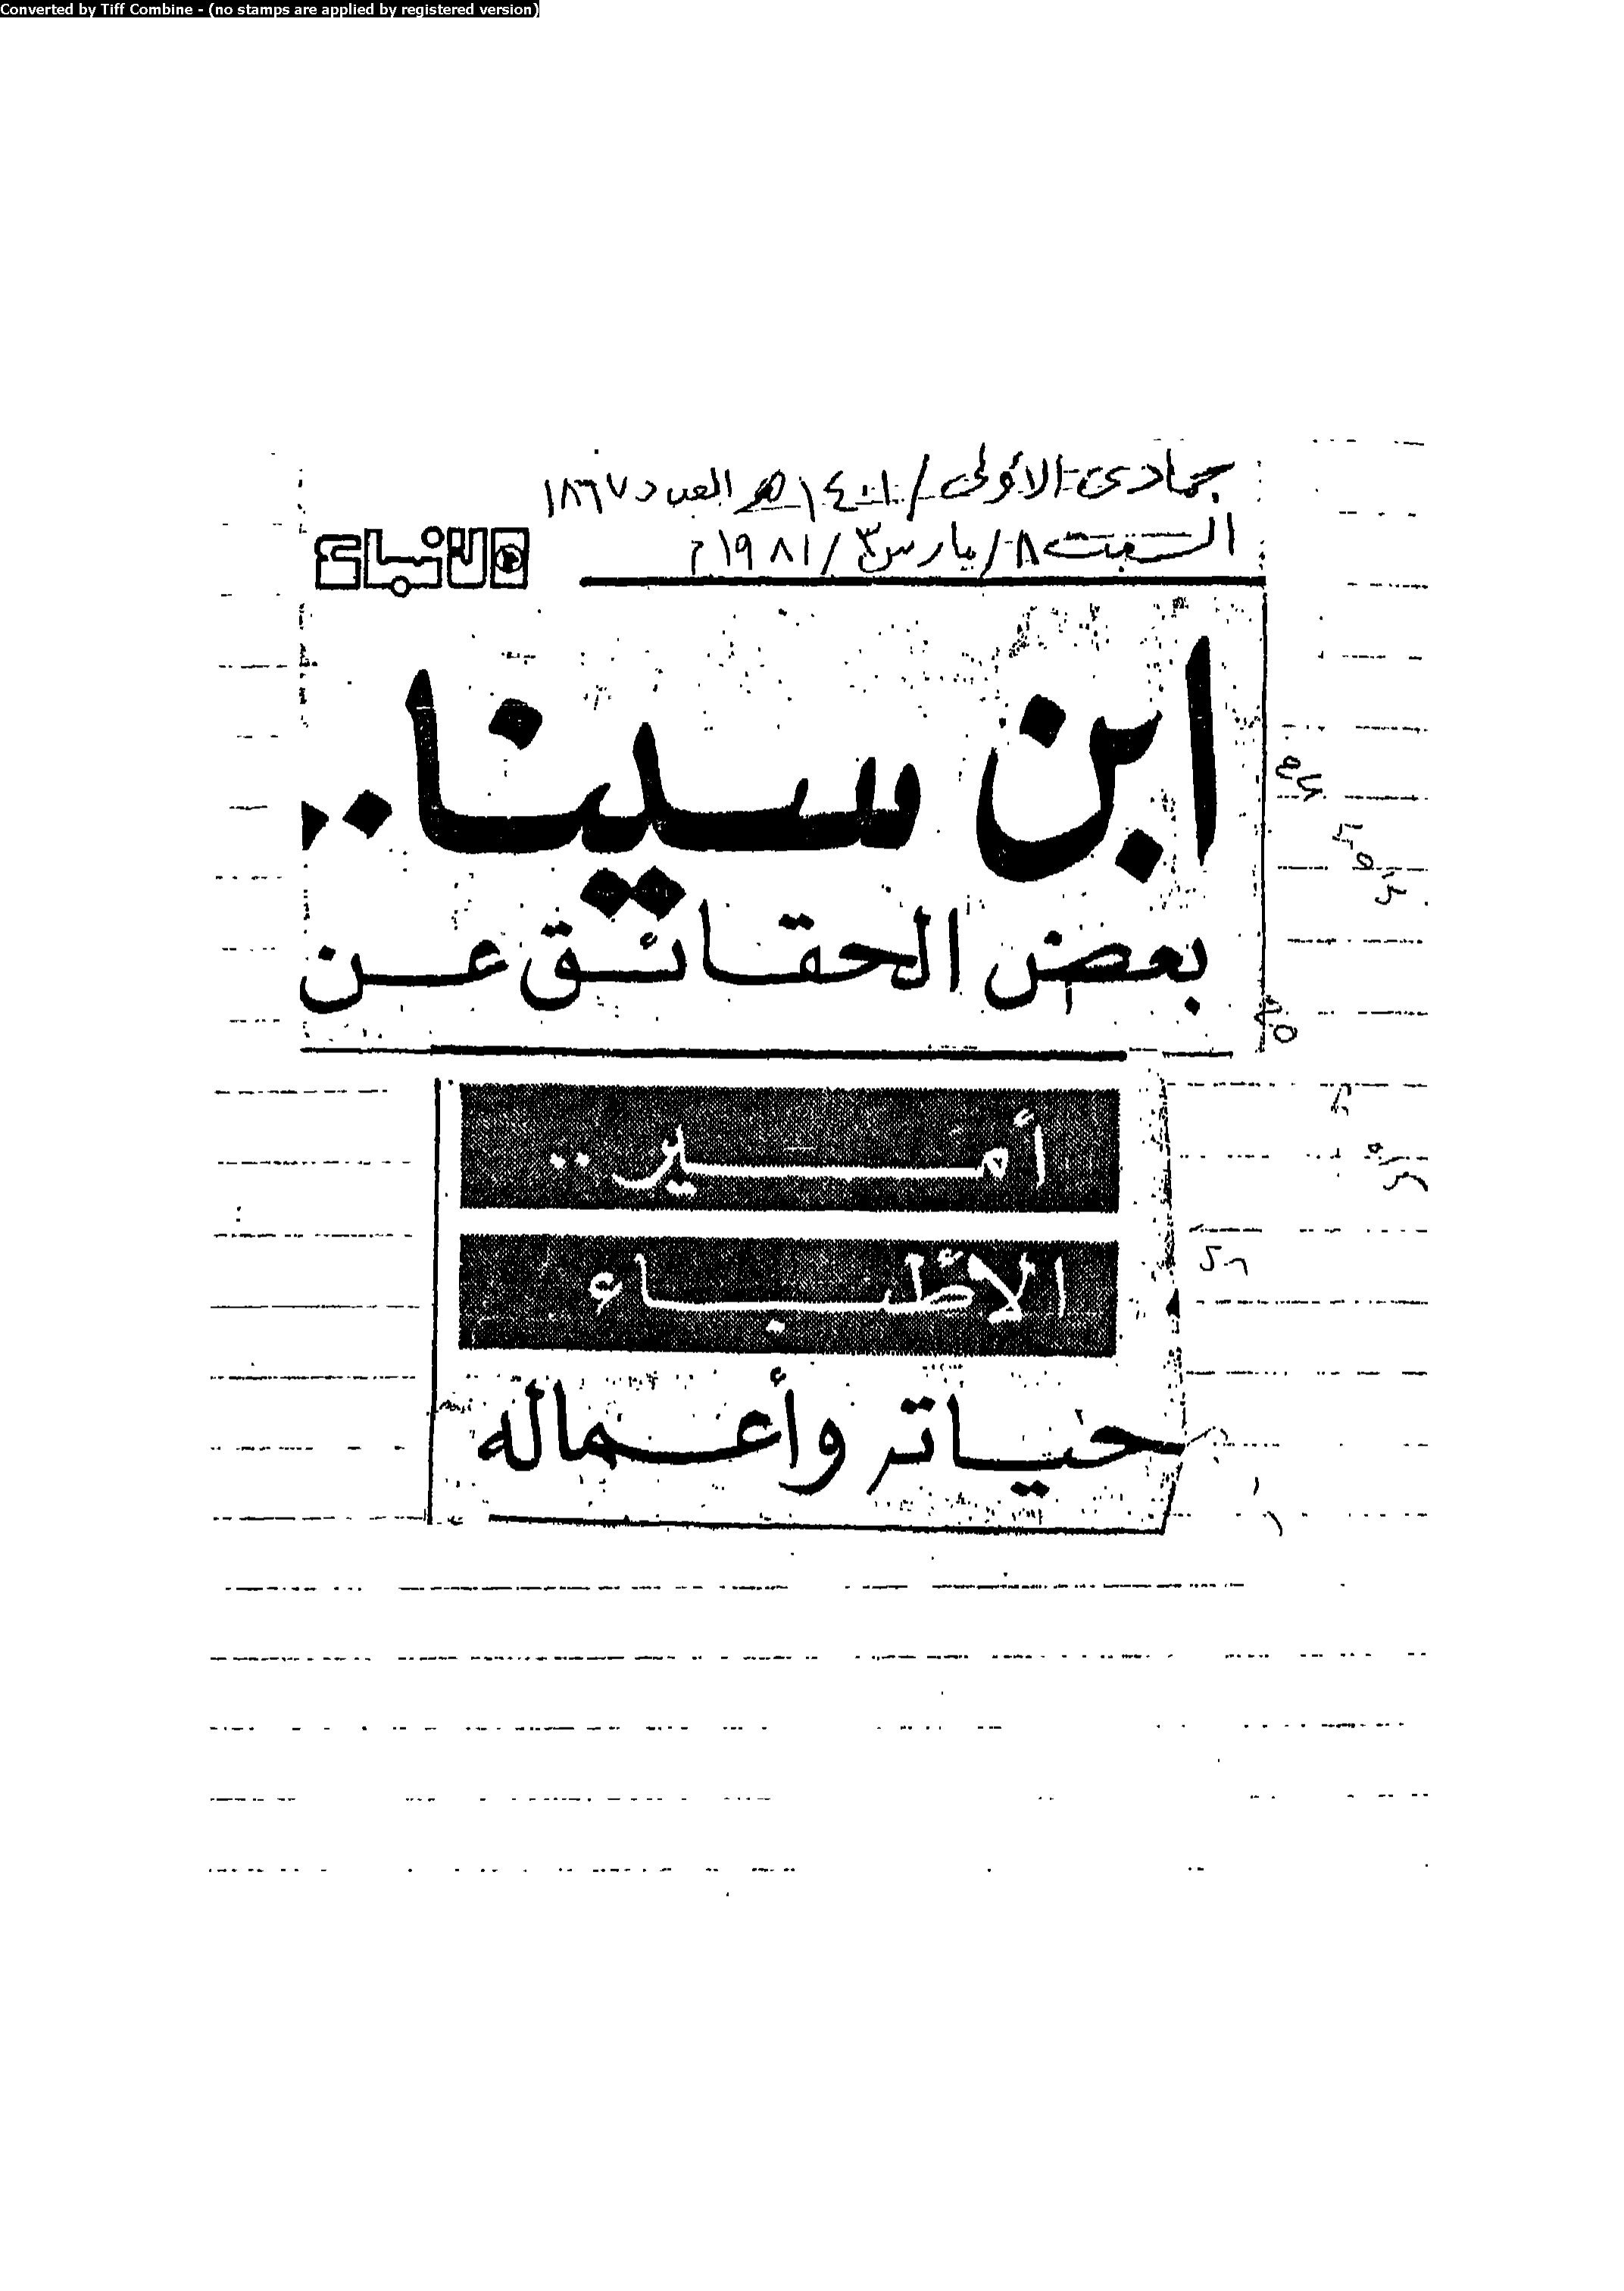 Converted by Tiff Combine - (no stamps are applied by registered version)
جمادى الأولى / ١٤٠١ هـ العدد ١٨٦٧
السبت ٨/ مارس ٣/ ١٩٨١ م
الأنباء
ابن سينا..
بعض الحقائق عن
أمير..
الأطباء
حياته وأعماله